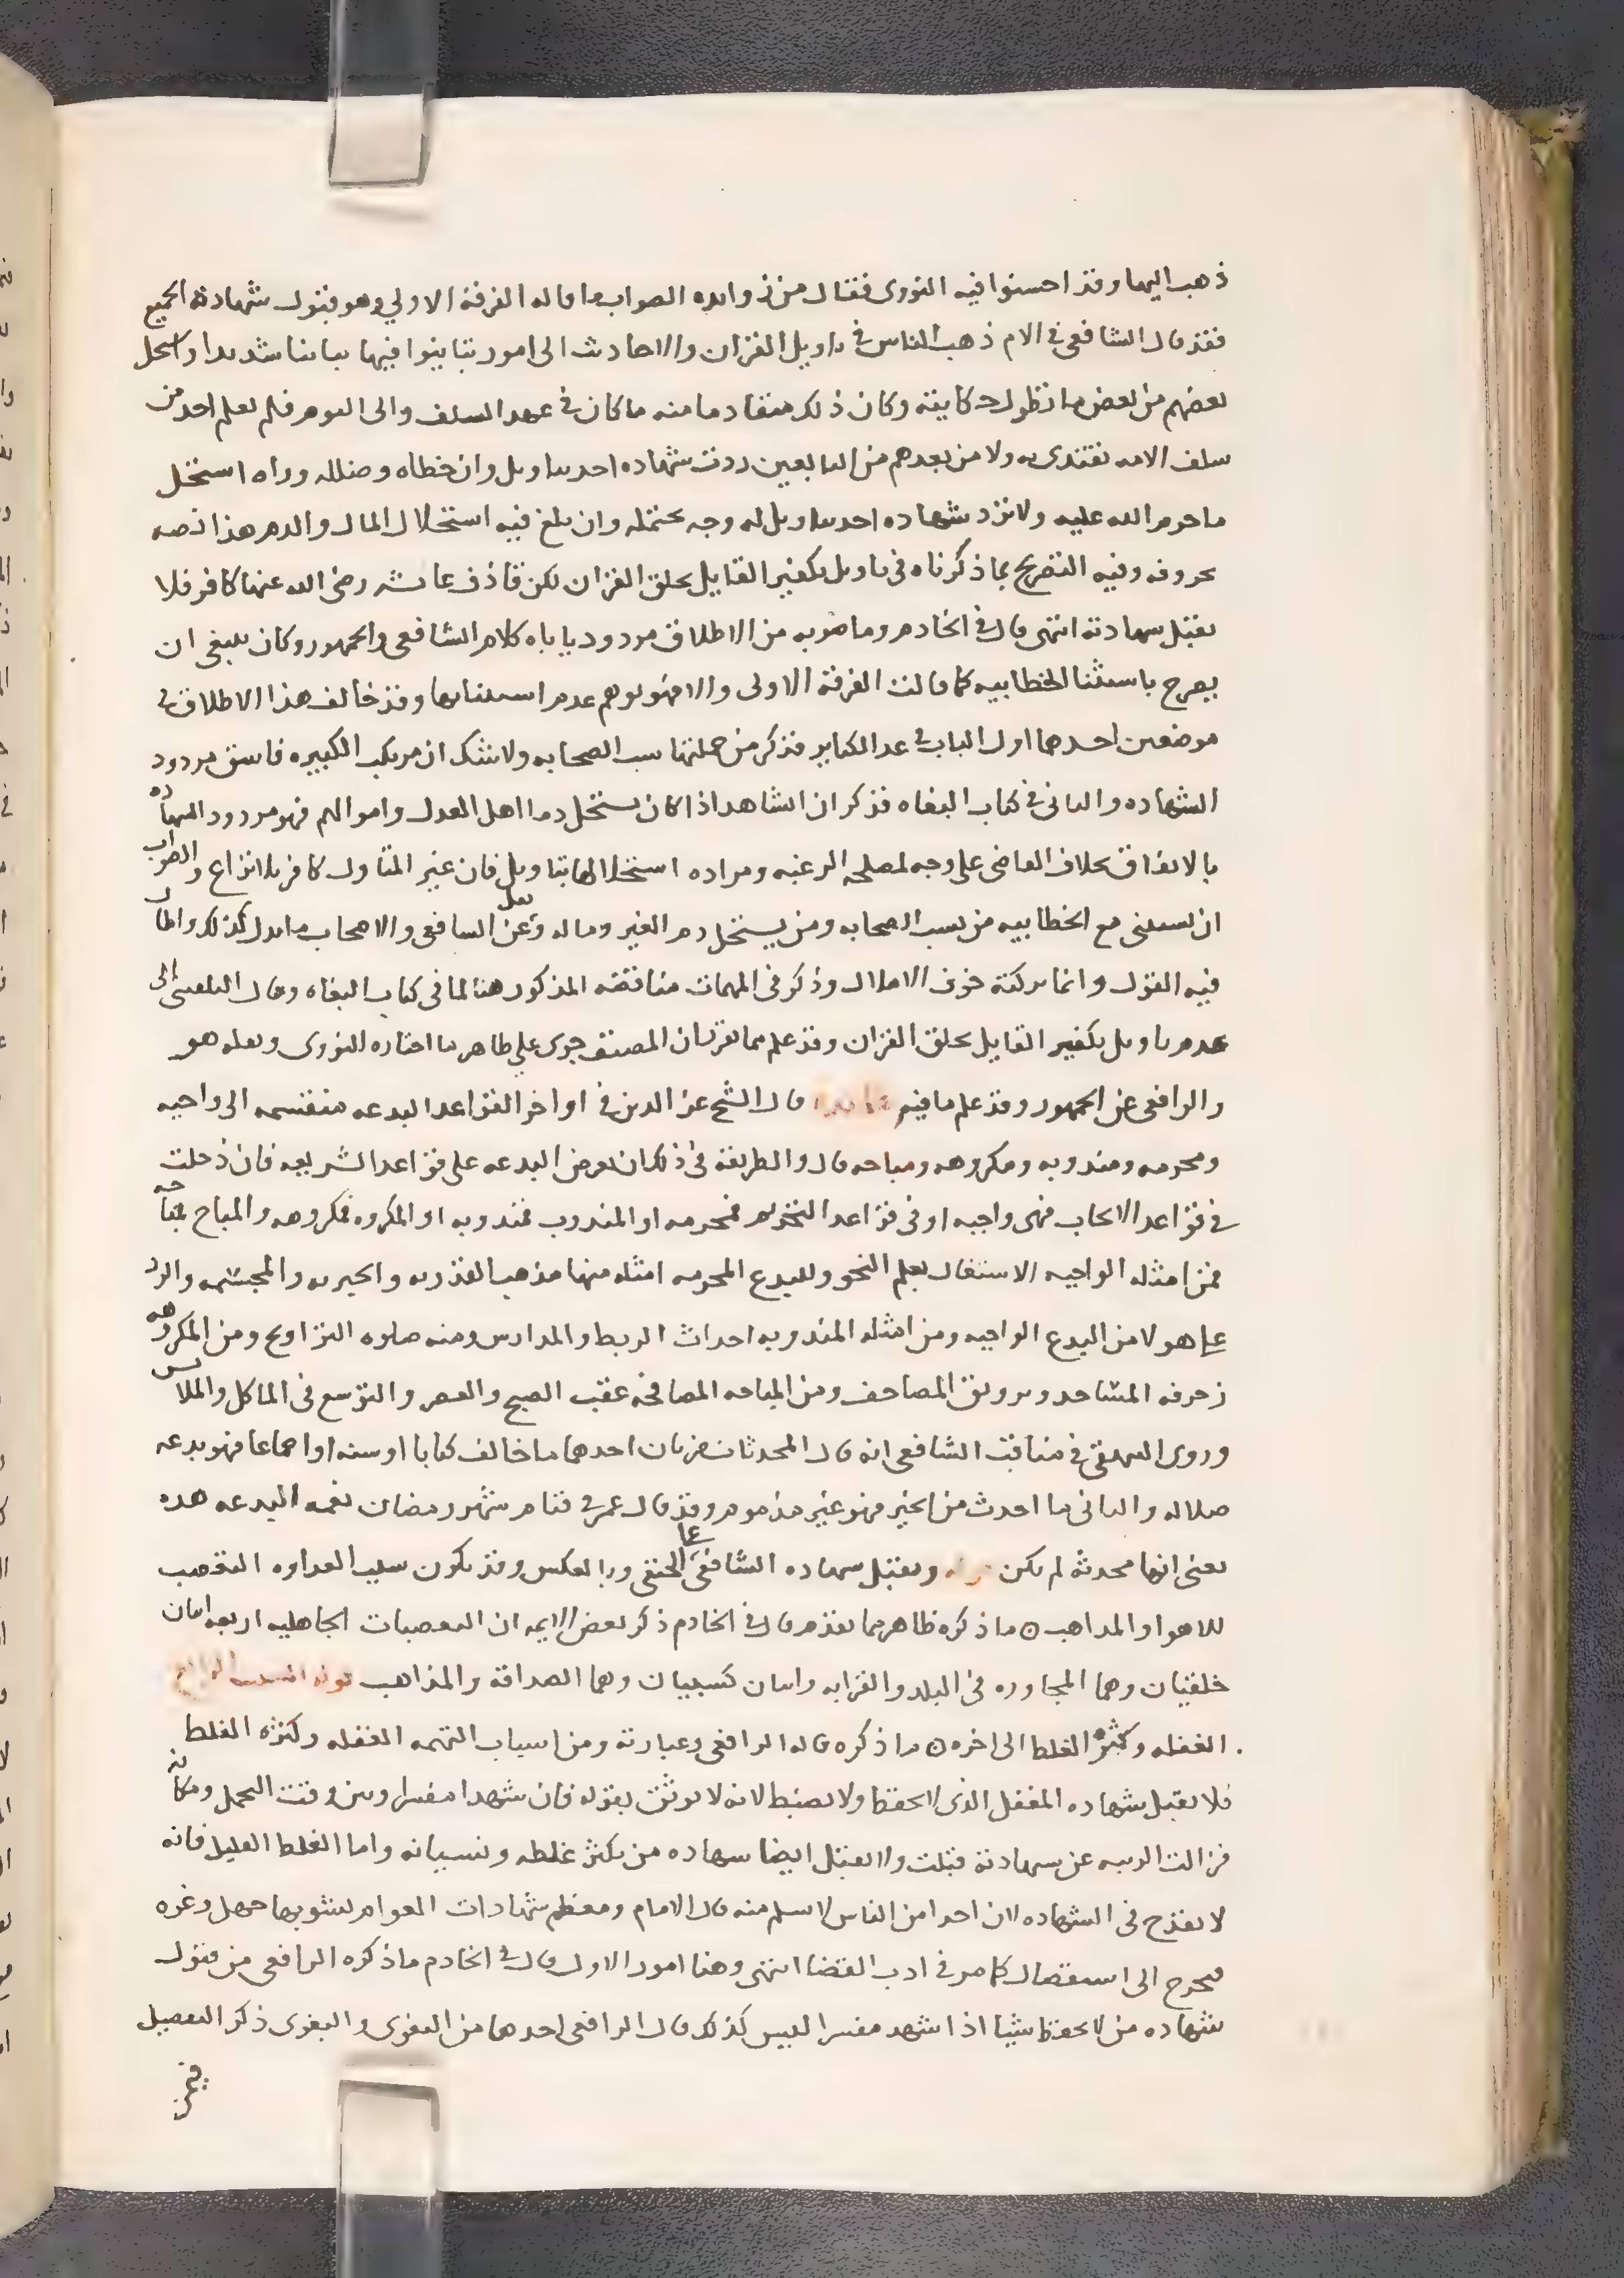 ذهب اليها وقد احسنوا فيه النووى فقال من زوايده الصواب ما قاله الفرقة الاولي وهو قبول شهادة الجميع
فقد قال الشافعى فى الام ذهب الناس فى تاويل القران والاحاديث الى امور تباينوا فيها تباينا شديدا واستحل
بعضهم من بعض ما تطول حكايته وكان ذلك متقادما منه ما كان فى عهد السلف والى اليوم فلم نعلم احد من
سلف الامه نقتدى به ولا من بعدهم من التابعين ردت شهاده احد بتاويل وان خطاه وضلله وراه استحل
ما حرم الله عليه ولا نرد شهاده احد بتاويل له وجه يحتمله وان بلغ فيه استحلال المال والدم هذا نصه
بحروفه وفيه التصريح بما ذكرناه فى تاويل تكفير القايل بخلق القران لكن قاذف عائشه رضى الله عنها كافر فلا
تقبل شهادته انتهى قال فى الخادم وما صوبه من الاطلاق مردود ياباه كلام الشافعى والجمهور وكان ينبغى ان
يصرح باستثنا الخطابيه كما قالت الفرقة الاولى والا فهو يوهم عدم استثنايها وقد خالف هذا الاطلاق فى
موضعين احدهما اول الباب فى عد الكباير فذكر من جملتها سب الصحابه ولا شك ان مرتكب الكبيره فاسق مردود
الشهاده والثانى فى كتاب البغاه فذكر ان الشاهد اذا كان يستحل دما اهل العدل واموالهم فهو مردود الشهاده
بالاتفاق بخلاف القاضى على وجه لمصلحه الرعيه ومراده استحلالها بتاويل فان غير المتاول كافر بلا نزاع والصواب
ان يستثنى مع الخطابيه من يسب الصحابه ومن يستحل دم الغير وماله ونقل عن الشافعى والاصحاب ما يدل لذلك واطال
فيه القول وانما تركته خوف الاملال وذكر فى المهمات مناقضه المذكور هنا لما فى كتاب البغاه ومال البلقينى الى
عدم تاويل تكفير القايل بخلق القران وقد علم مما تقرر ان المصنف جرى علي ظاهر ما اختاره النووى ونقله هو
والرافعى عن الجمهور وقد علم ما فيه فايده قال الشيخ عز الدين فى اواخر القواعد البدعه منقسمه الى واجبه
ومحرمه ومندوبه ومكروهه ومباحه قال والطريقة فى ذلك ان تعرض البدعه على قواعد الشريعه فان دخلت
فى قواعد الايجاب فهى واجبه او فى قواعد التحريم فمحرمه او المندوب فمندوبه او المكروه فمكروهه والمباح فمباحه
فمن امثله الواجبه الاشتغال بعلم النحو وللبدع المحرمه امثله منها مذهب القدريه والجبريه والمجسمه والرد
على هولا من البدع الواجبه ومن امثله المندوبه احداث الربط والمدارس ومنه صلوه التراويح ومن المكروهه
زخرفه المساجد وتزويق المصاحف ومن المباحه المصافحه عقب الصبح والعصر والتوسع فى الماكل والملابس
وروى البيهقى فى مناقب الشافعى انه قال المحدثات ضربان احدهما ما خالف كتابا او سنه او اجماعا فهو بدعه
ضلاله والثانى ما احدث من الخير فهو غير مذموم وقد قال عمر فى قيام شهر رمضان نعمه البدعه هذه
يعنى انها محدثه لم تكن قوله وتقبل شهاده الشافعى على الحنفى وبالعكس وقد يكون سبب العداوه التعصب
للاهوا والمذاهب ه ما ذكره ظاهر مما تقدم قال فى الخادم ذكر بعض الايمه ان التعصبات الجاهليه اربعه اثنان
خلقيان وهما المجاوره فى البلد والقرابه واثنان كسبيان وهما الصداقة والمذاهب قوله السبب الرابع
الغفله وكثره الغلط الى اخره ه ما ذكره قاله الرافعى وعبارته ومن اسباب التهمه الغفله وكثره الغلط
فلا تقبل شهاده المغفل الذى لا يحفظ ولا يضبط لانه لا يوثق بقوله فان شهد امفسرا وبين وقت التحمل ومكانه
فزالت الريبه عن شهادته قبلت ولا تقبل ايضا شهاده من يكثر غلطه ونسيانه واما الغلط القليل فانه
لا يقدح فى الشهاده لان احدا من الناس لا يسلم منه قال الامام ومعظم شهادات العوام يشوبها جهل وغره
فيحوج الى استفصال كما مر فى ادب القضا انتهى وهنا امور الاول قال فى الخادم ما ذكره الرافعى من قبول
شهاده من لا يحفظ شيا اذا شهد مفسرا ليس كذلك قال الرافعى احدهما من البغوى والبغوى ذكر التفصيل